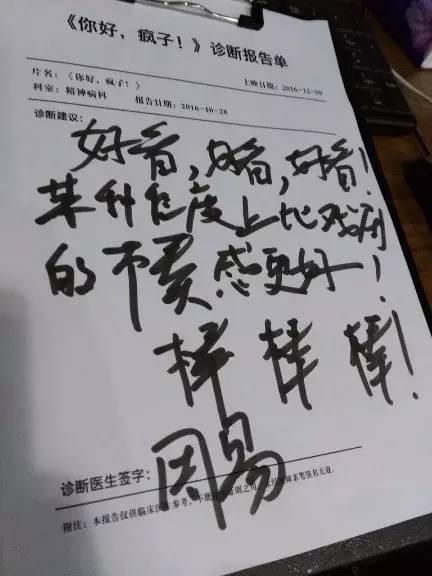 《你好，疯子！》诊断报告单
片名：《你好，疯子！》 上映日期：2016-12-09
科室：精神病科 报告日期：2016-10-28
诊断建议：
好看，好看，好看！
某种程度上比戏剧
的 感更好！
棒 棒 棒！
诊断医生签字：
附注：本报告仅供临床医生参考，不能